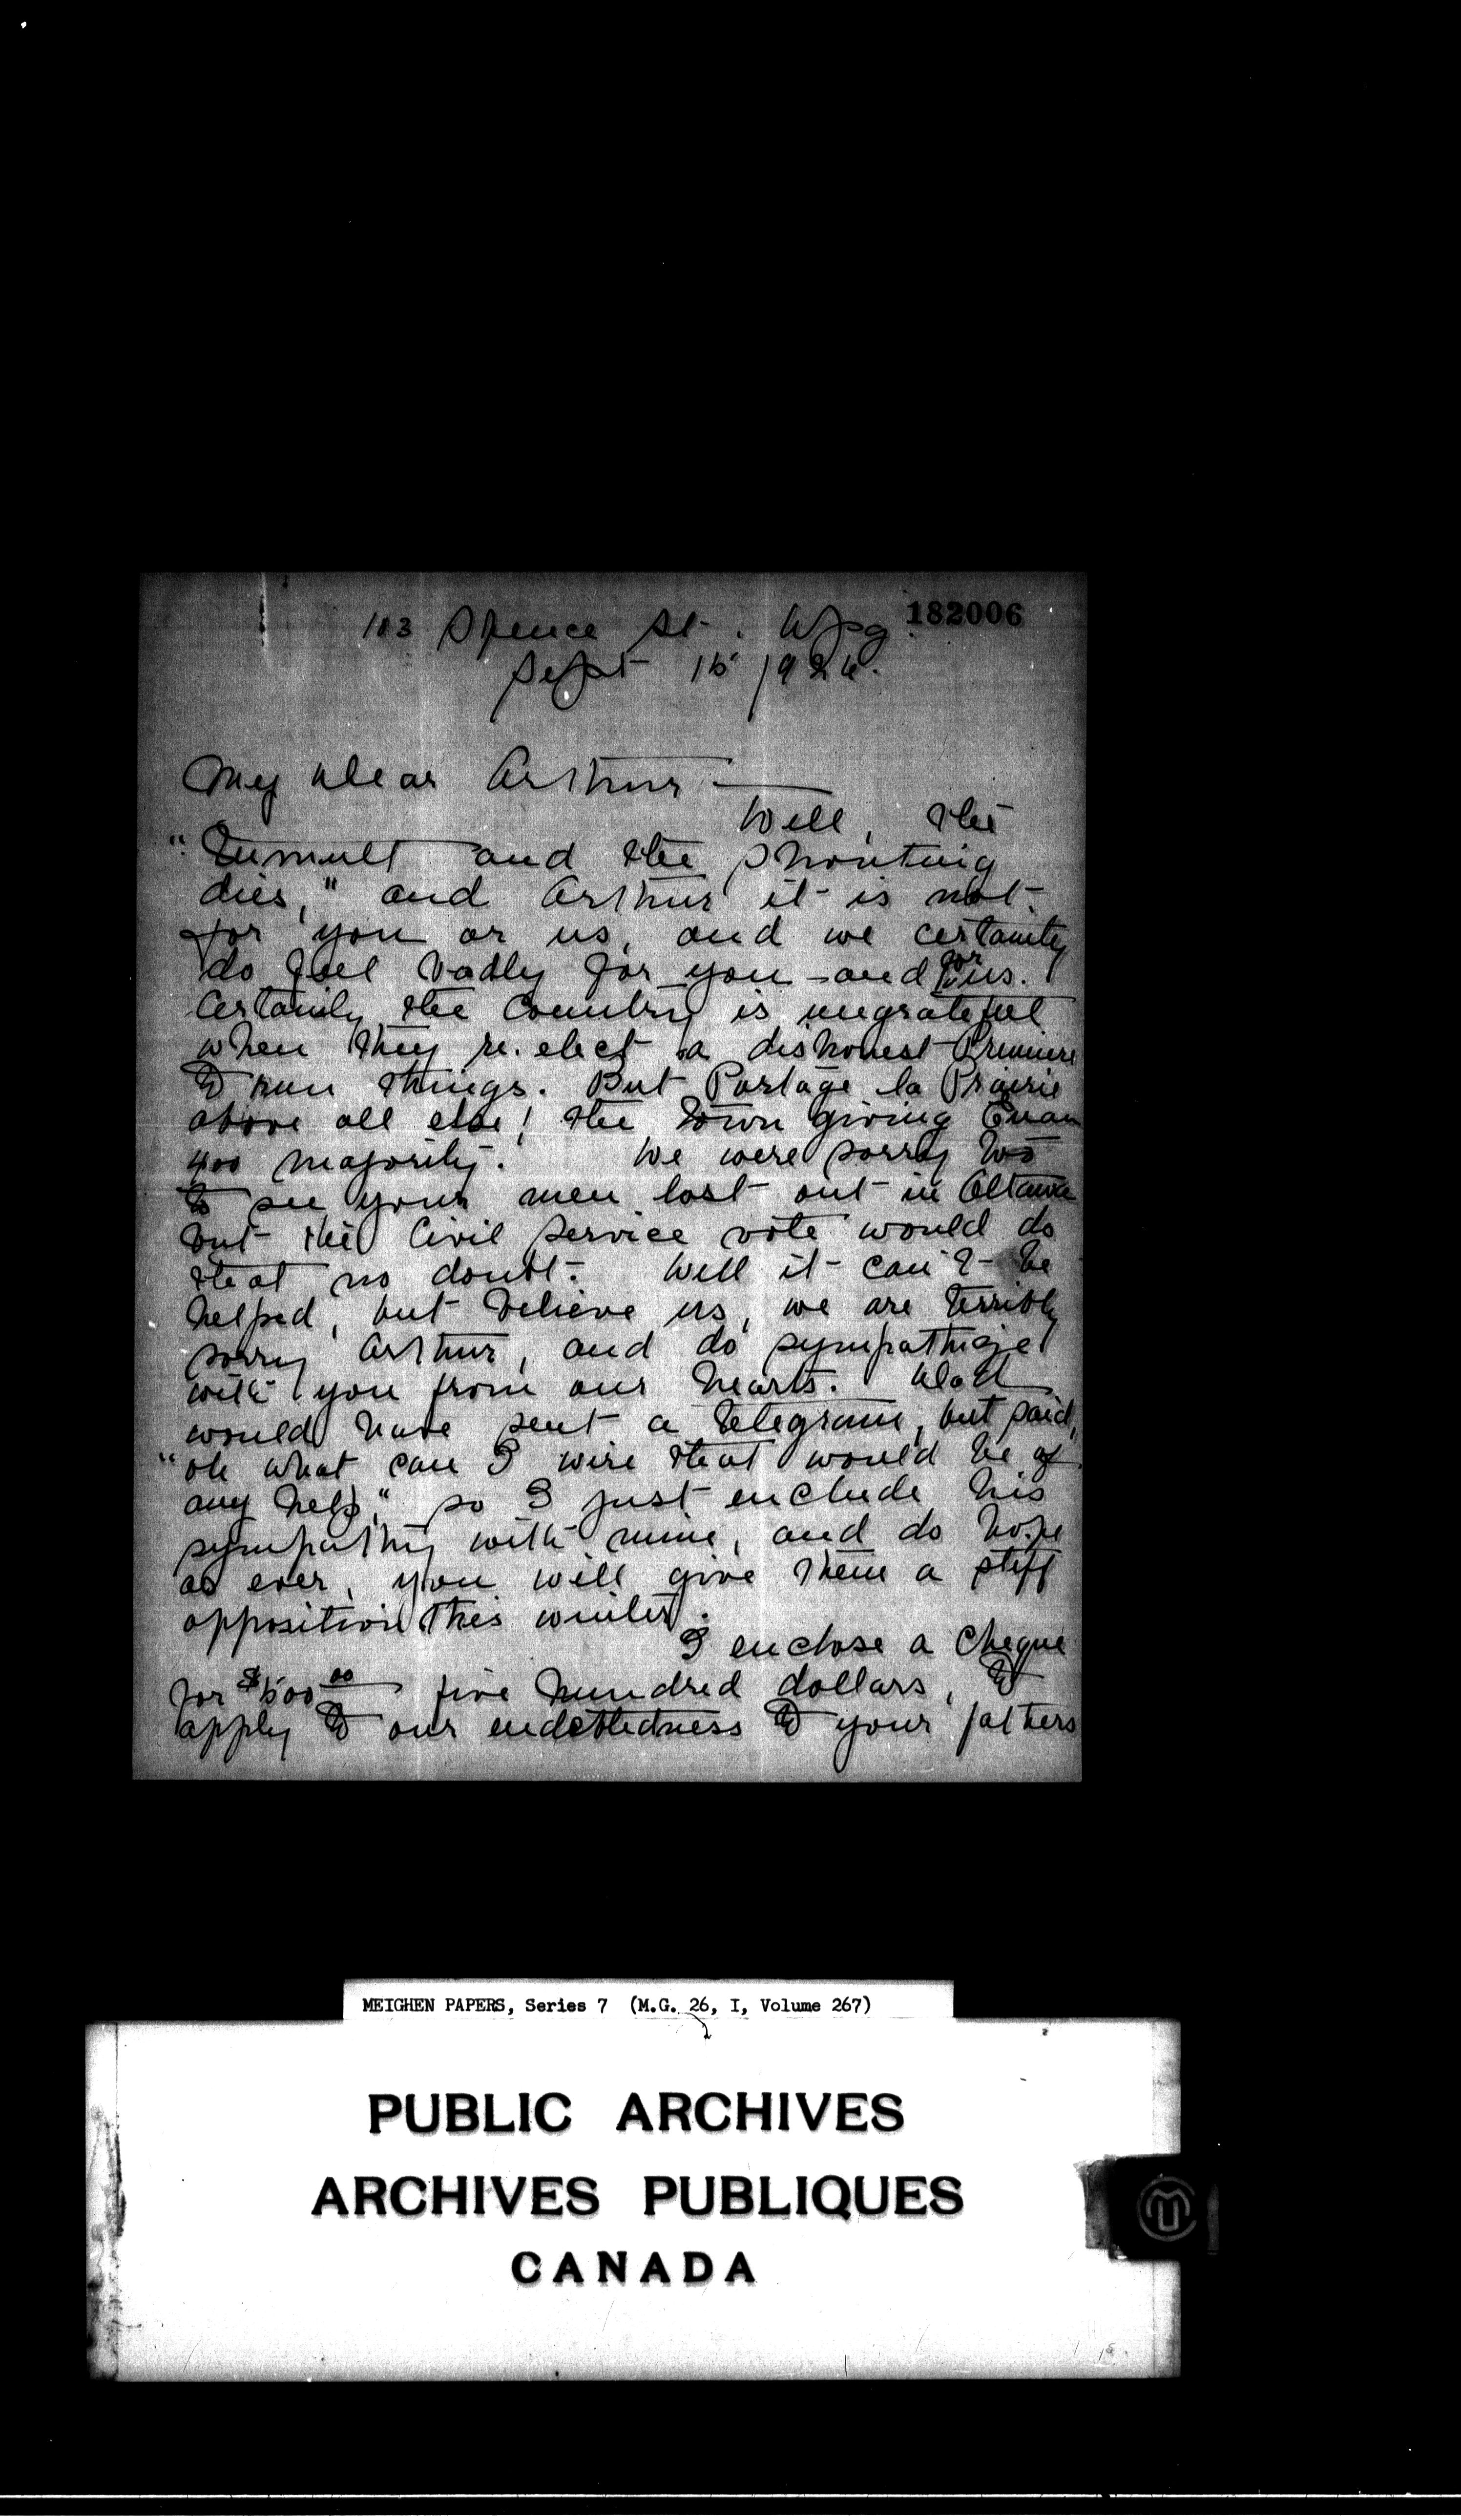 182006
103 Spence St. Wpg.
Sept 15 1926.
My dear Arthur —
Well, the
"Tumult and the shouting
dies," and Arthur it is not
for you or us, and we certainly
do feel badly for you – and for us.
Certainly the Country is ungrateful
when they re-elect a dishonest Premier
to run things. But Portage la Prairie
above all else! the town giving Ewan
400 majority. We were sorry too
to see your men lost out in Ottawa
but the Civil Service vote would do
that no doubt. Well it can't be
helped, but believe us, we are terribly
sorry Arthur, and do sympathize
with you from our hearts.
would have sent a telegram, but said,
"oh what can I wire that would be of
any help," so I just enclude his
sympathy with mine, and do hope
as ever, you will give them a stiff
opposition this winter.
I enclose a Cheque
for $500.00 five hundred dollars, to
apply to our endebtedness to your fathers
MEIGHEN PAPERS, Series 7 (M.G. 26, I, Volume 267)
2
PUBLIC ARCHIVES
ARCHIVES PUBLIQUES
CANADA